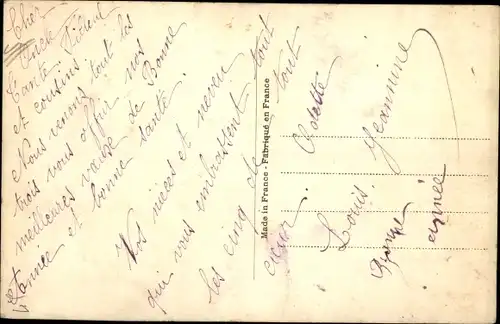 Cher
Oncle
Tante
et cousins
Nous venons tout les
trois vous offrir nos
meilleures vœux de Bonne
et année et bonne santé.
Vos nièces et neveu
qui vous embrassent tout
les cinq de tout
cœur.
Odette
Louis Jeannine
Bonne année
Made in France - Fabriqué en France